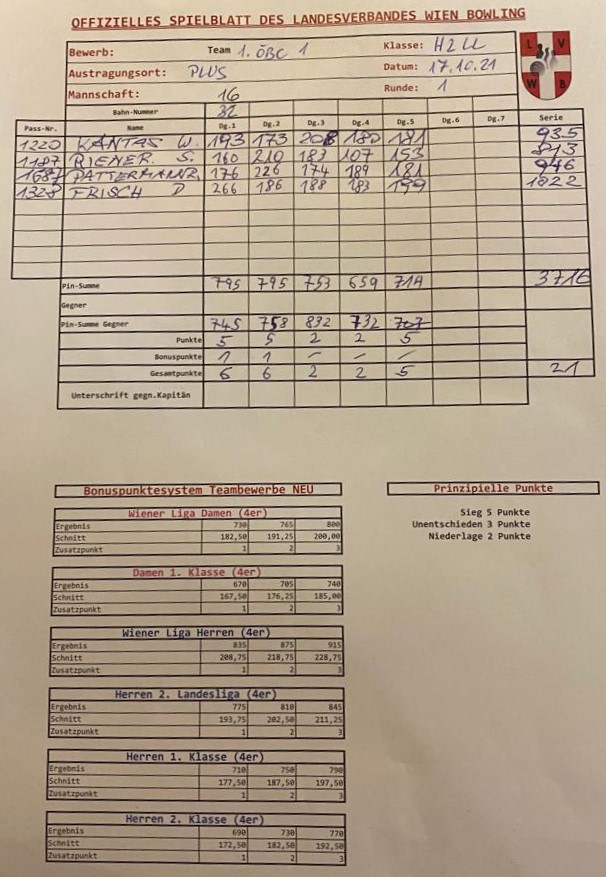 OFFIZIELLES SPIELBLATT DES LANDESVERBANDES WIEN BOWLING
Bewerb: Team 1. ÖBC 1 Klasse: H2 LL
Austragungsort: PLUS Datum: 17.10.21
Mannschaft: 16 Runde: 1
L V W B
Bahn-Nummer 32
Pass-Nr. Name Dg.1 Dg.2 Dg.3 Dg.4 Dg.5 Dg.6 Dg.7 Serie
1220 KANTAS W. 193 173 208 180 181 935
1187 RIENER. S. 160 210 183 107 153 813
1687 PATTERMANN, 176 226 174 189 181 946
1328 FRISCH D 266 186 188 183 199 1022
Pin-Summe 795 795 753 659 714 3716
Gegner
Pin-Summe Gegner 745 758 832 732 707
Punkte 5 5 2 2 5
Bonuspunkte 1 1 — — —
Gesamtpunkte 6 6 2 2 5 21
Unterschrift gegn.Kapitän
Bonuspunktesystem Teambewerbe NEU
Wiener Liga Damen (4er)
Ergebnis 730 765 800
Schnitt 182,50 191,25 200,00
Zusatzpunkt 1 2 3
Damen 1. Klasse (4er)
Ergebnis 670 705 740
Schnitt 167,50 176,25 185,00
Zusatzpunkt 1 2 3
Wiener Liga Herren (4er)
Ergebnis 835 875 915
Schnitt 208,75 218,75 228,75
Zusatzpunkt 1 2 3
Herren 2. Landesliga (4er)
Ergebnis 775 810 845
Schnitt 193,75 202,50 211,25
Zusatzpunkt 1 2 3
Herren 1. Klasse (4er)
Ergebnis 710 750 790
Schnitt 177,50 187,50 197,50
Zusatzpunkt 1 2 3
Herren 2. Klasse (4er)
Ergebnis 690 730 770
Schnitt 172,50 182,50 192,50
Zusatzpunkt 1 2 3
Prinzipielle Punkte
Sieg 5 Punkte
Unentschieden 3 Punkte
Niederlage 2 Punkte